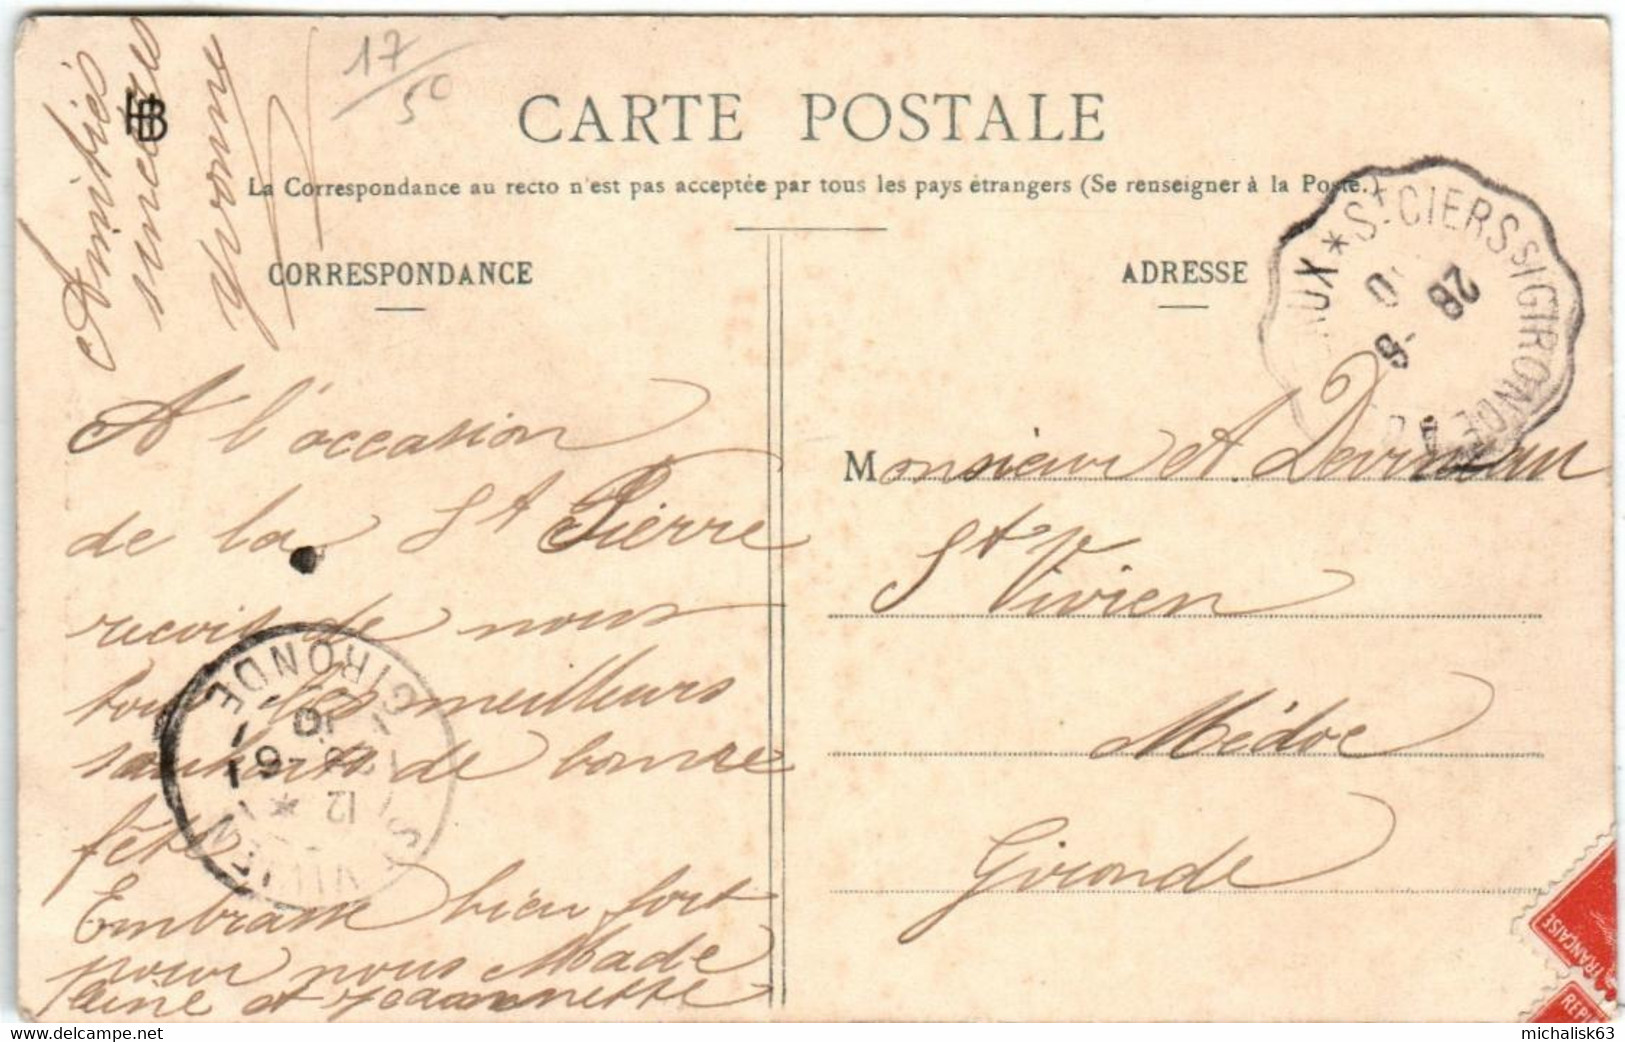 Amitiés
sincères
Yvonne
HB
17/50
CARTE POSTALE
La Correspondance au recto n'est pas acceptée par tous les pays étrangers (Se renseigner à la Poste.)
CORRESPONDANCE
A l'occasion
de la St Pierre
recois de nous
tous les meilleurs
souhaits de bonne
fête
Embrasse bien fort
pour nous Made
leine et Jeannette
ST VIVIEN * GIRONDE
12
6
10
ADRESSE
Monsieur A.
St Vivien
Médoc
Gironde
UX * ST CIERS S/GIRONDE A
28
6
FRANÇAISE
REPU
michalisk63